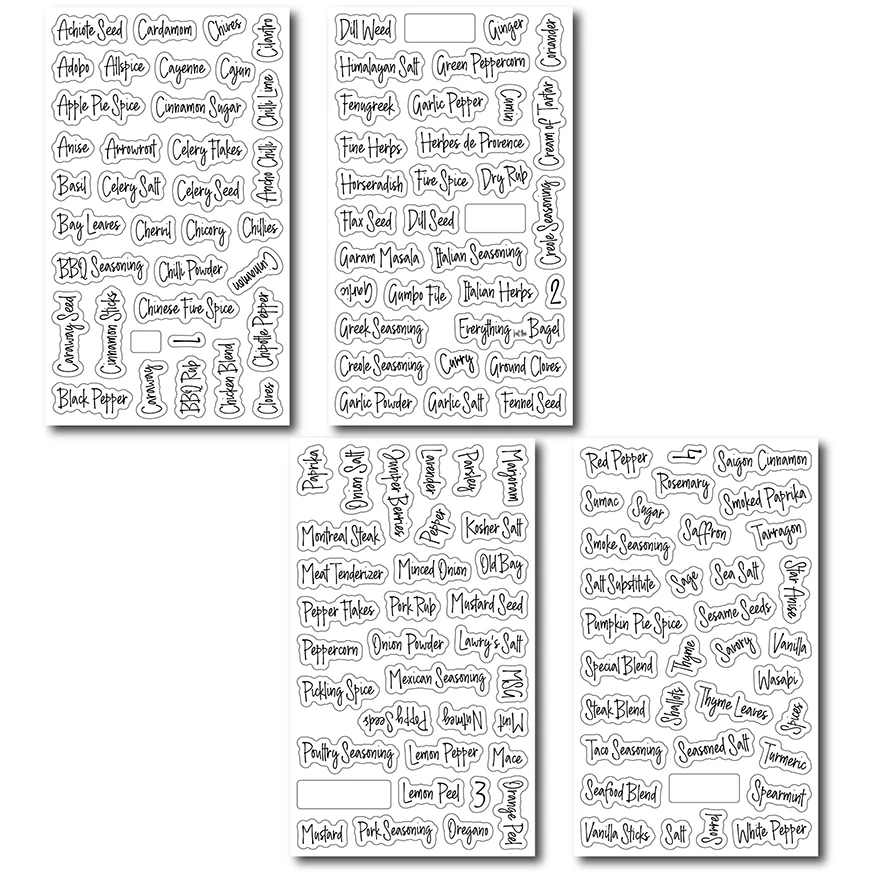 Achiote Seed
Cardamom
Chives
Cilantro
Adobo
Allspice
Cayenne
Cajun
Chili Lime
Apple Pie Spice
Cinnamon Sugar
Anise
Arrowroot
Celery Flakes
Ancho Chili
Basil
Celery Salt
Celery Seed
Bay Leaves
Chervil
Chicory
Chillies
BBQ Seasoning
Chili Powder
Cinnamon
Caraway Seed
Cinnamon Sticks
Chinese Five Spice
Chipotle Pepper
1
Black Pepper
Caraway
BBQ Rub
Chicken Blend
Cloves
Dill Weed
Ginger
Coriander
Himalayan Salt
Green Peppercorn
Fenugreek
Garlic Pepper
Cumin
Cream of Tartar
Fine Herbs
Herbes de Provence
Horseradish
Five Spice
Dry Rub
Creole Seasoning
Flax Seed
Dill Seed
Garam Masala
Italian Seasoning
Garlic
Gumbo File
Italian Herbs
2
Greek Seasoning
Everything but the Bagel
Creole Seasoning
Curry
Ground Cloves
Garlic Powder
Garlic Salt
Fennel Seed
Paprika
Onion Salt
Juniper Berries
Lavender
Parsley
Marjoram
Montreal Steak
Pepper
Kosher Salt
Meat Tenderizer
Minced Onion
Old Bay
Pepper Flakes
Pork Rub
Mustard Seed
Peppercorn
Onion Powder
Lawry's Salt
Pickling Spice
Mexican Seasoning
MSG
Poppy Seeds
Nutmeg
Mint
Poultry Seasoning
Lemon Pepper
Mace
Lemon Peel
3
Orange Peel
Mustard
Pork Seasoning
Oregano
Red Pepper
4
Saigon Cinnamon
Rosemary
Sumac
Sugar
Smoked Paprika
Smoke Seasoning
Saffron
Tarragon
Salt Substitute
Sage
Sea Salt
Star Anise
Pumpkin Pie Spice
Sesame Seeds
Special Blend
Thyme
Savory
Vanilla
Wasabi
Steak Blend
Shallots
Thyme Leaves
Spices
Taco Seasoning
Seasoned Salt
Turmeric
Seafood Blend
Spearmint
Vanilla Sticks
Salt
Sorrel
White Pepper